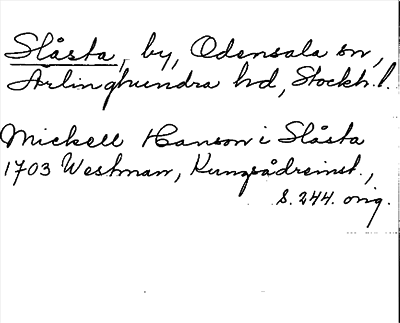 Slåsta, by, Odensala sn,
Ärlinghundra hd, Stockh. l.
Mickell Hanson i Slåsta
1703 Westman, Kungsådreinst.,
S. 244. orig.